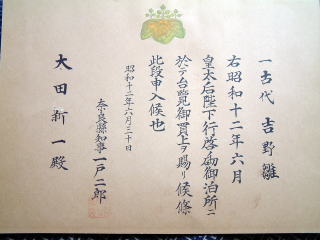 一古代 吉野雛
右昭和十二年六月
皇太后陛下行啓ノ砌御泊所ニ
於テ台覧御買上ヲ賜リ候條
此段申入候也
昭和十二年六月三十日
奈良縣知事一戸二郎
大田新一殿